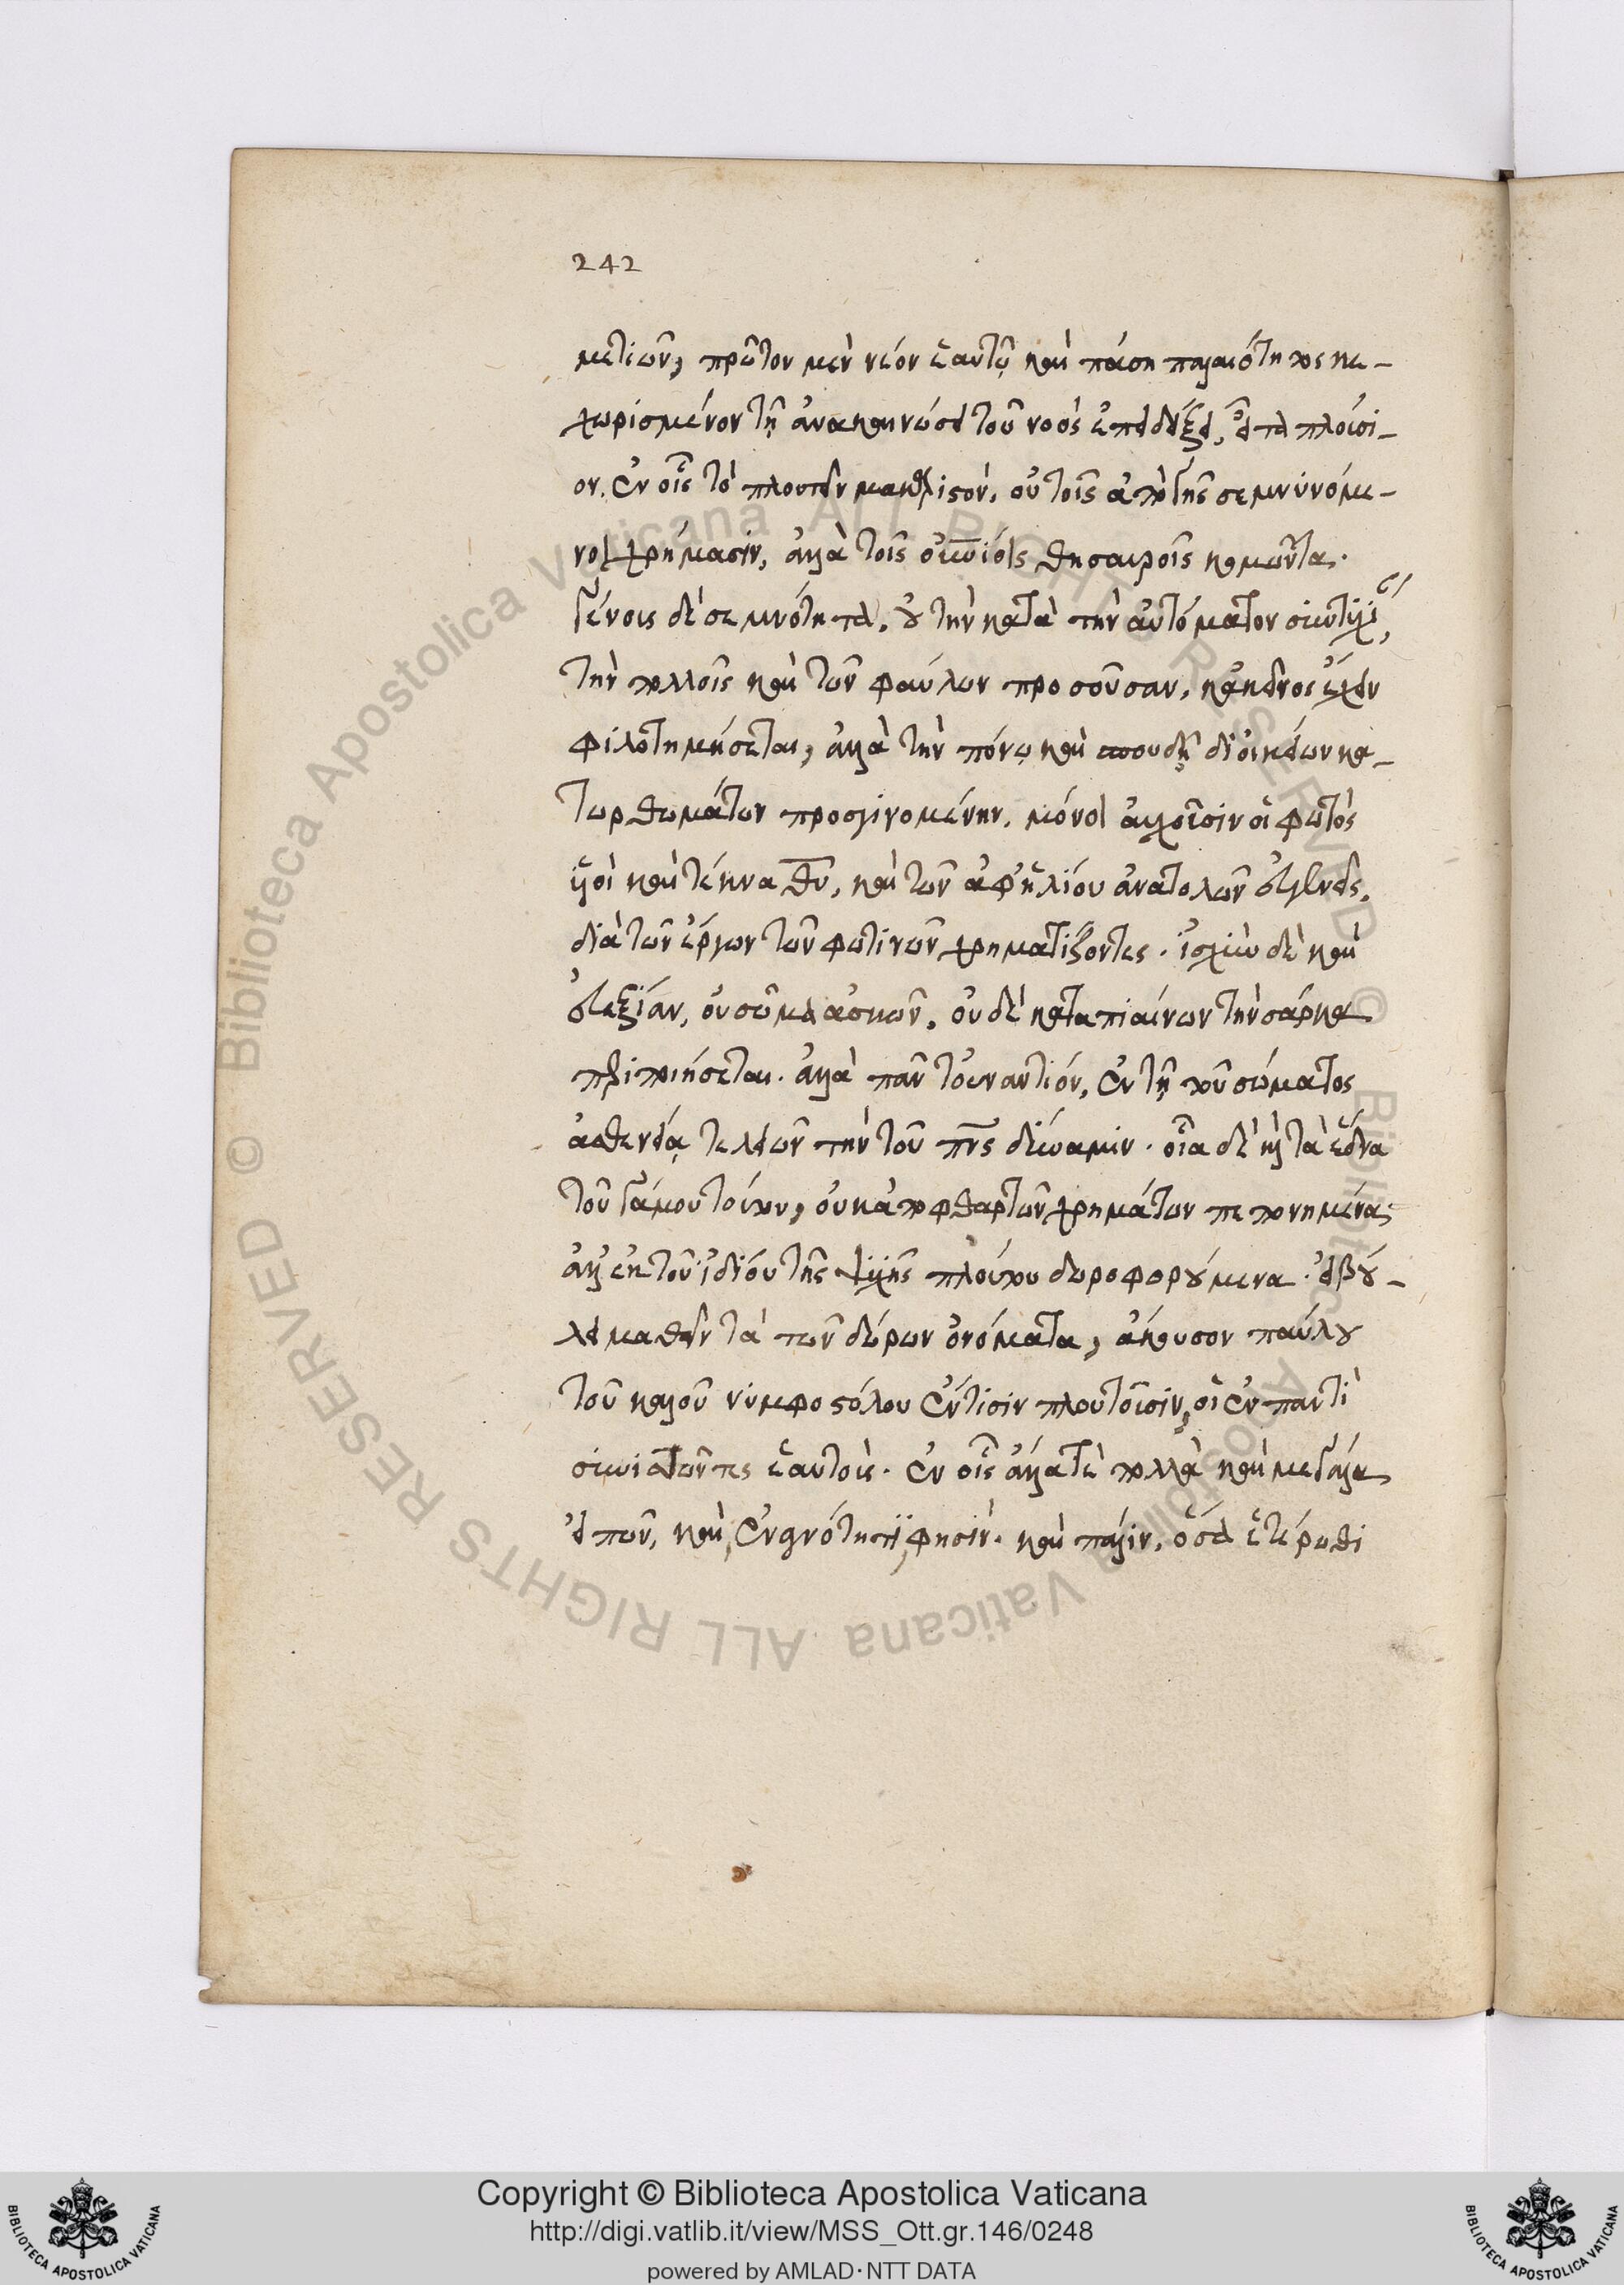 242
μετιὼν, πρῶτον μὲν νέον ἑαυτῷ καὶ πάση παλαιότητος κε-
χωρισμένον τῇ ἀνακαινώσει τοῦ νοὸς ἐπιδείξει, εἶτα πλούσι-
ον. ἐν οἷς τὸ πλουτεῖν μακαριστόν. οὐ τοῖς ἀπὸ γῆς σεμνυνόμε-
νος χρήμασιν, ἀλλὰ τοῖς οὐνίοις θησαυροῖς κομῶντα.
γένους δὲ σεμνότητα. οὐ τὴν κατὰ τὴν αὐτόματον συντυχί
τὴν πολλοῖς καὶ τῶν φαύλων προσοῦσαν, κἀκεῖνος ἔχειν
φιλοτιμήσεται, ἀλλὰ τὴν πόνῳ καὶ σπουδῇ δι οἰκείων κα-
τορθωμάτων προσγινομένην. μόνοι αὐχοῦσιν οἱ φωτὸς
υἱοὶ καὶ τέκνα θυ, καὶ τῶν ἀφ ἡλίου ἀνατολῶν εὐγενεῖς,
διὰ τῶν ἔργων τῶν φωτινῶν χρηματίζοντες. ἰσχὺν δὲ καὶ
εὐεξίαν, οὐ σῶμα ἀσκῶν, οὐδὲ καταπιαίνων τὴν σάρκα
περιποιήσεται. ἀλλὰ πᾶν τοὐναντίον, ἐν τῇ τοῦ σώματος
ἀσθενείᾳ τελειῶν τὴν τοῦ πνς δύναμιν. οἶδα δὲ καὶ τὰ ἕδνα
τοῦ γάμου τούτου, οὐκ ἀπο φθαρτῶν χρημάτων πεπονημένα,
ἀλλ ἐκ τοῦ ἰδίου τῆς ψυχῆς πλούτου δωροφορούμενα. εἰ βού-
λει μαθεῖν τὰ τῶν δώρων ὀνόματα, ἄκουσον παύλου
τοῦ καλοῦ νυμφοστόλου ἐν τίσιν πλουτοῦσιν, οἱ ἐν παντὶ
συνιστῶντες ἑαυτοὺς. ἐν οἷς ἄλλα τὲ πολλὰ καὶ μεγάλα
εἰπων, καὶ, ἐν ἁγνότητι, φησὶν. καὶ πάλιν, ὅσα ἑτέρωθι